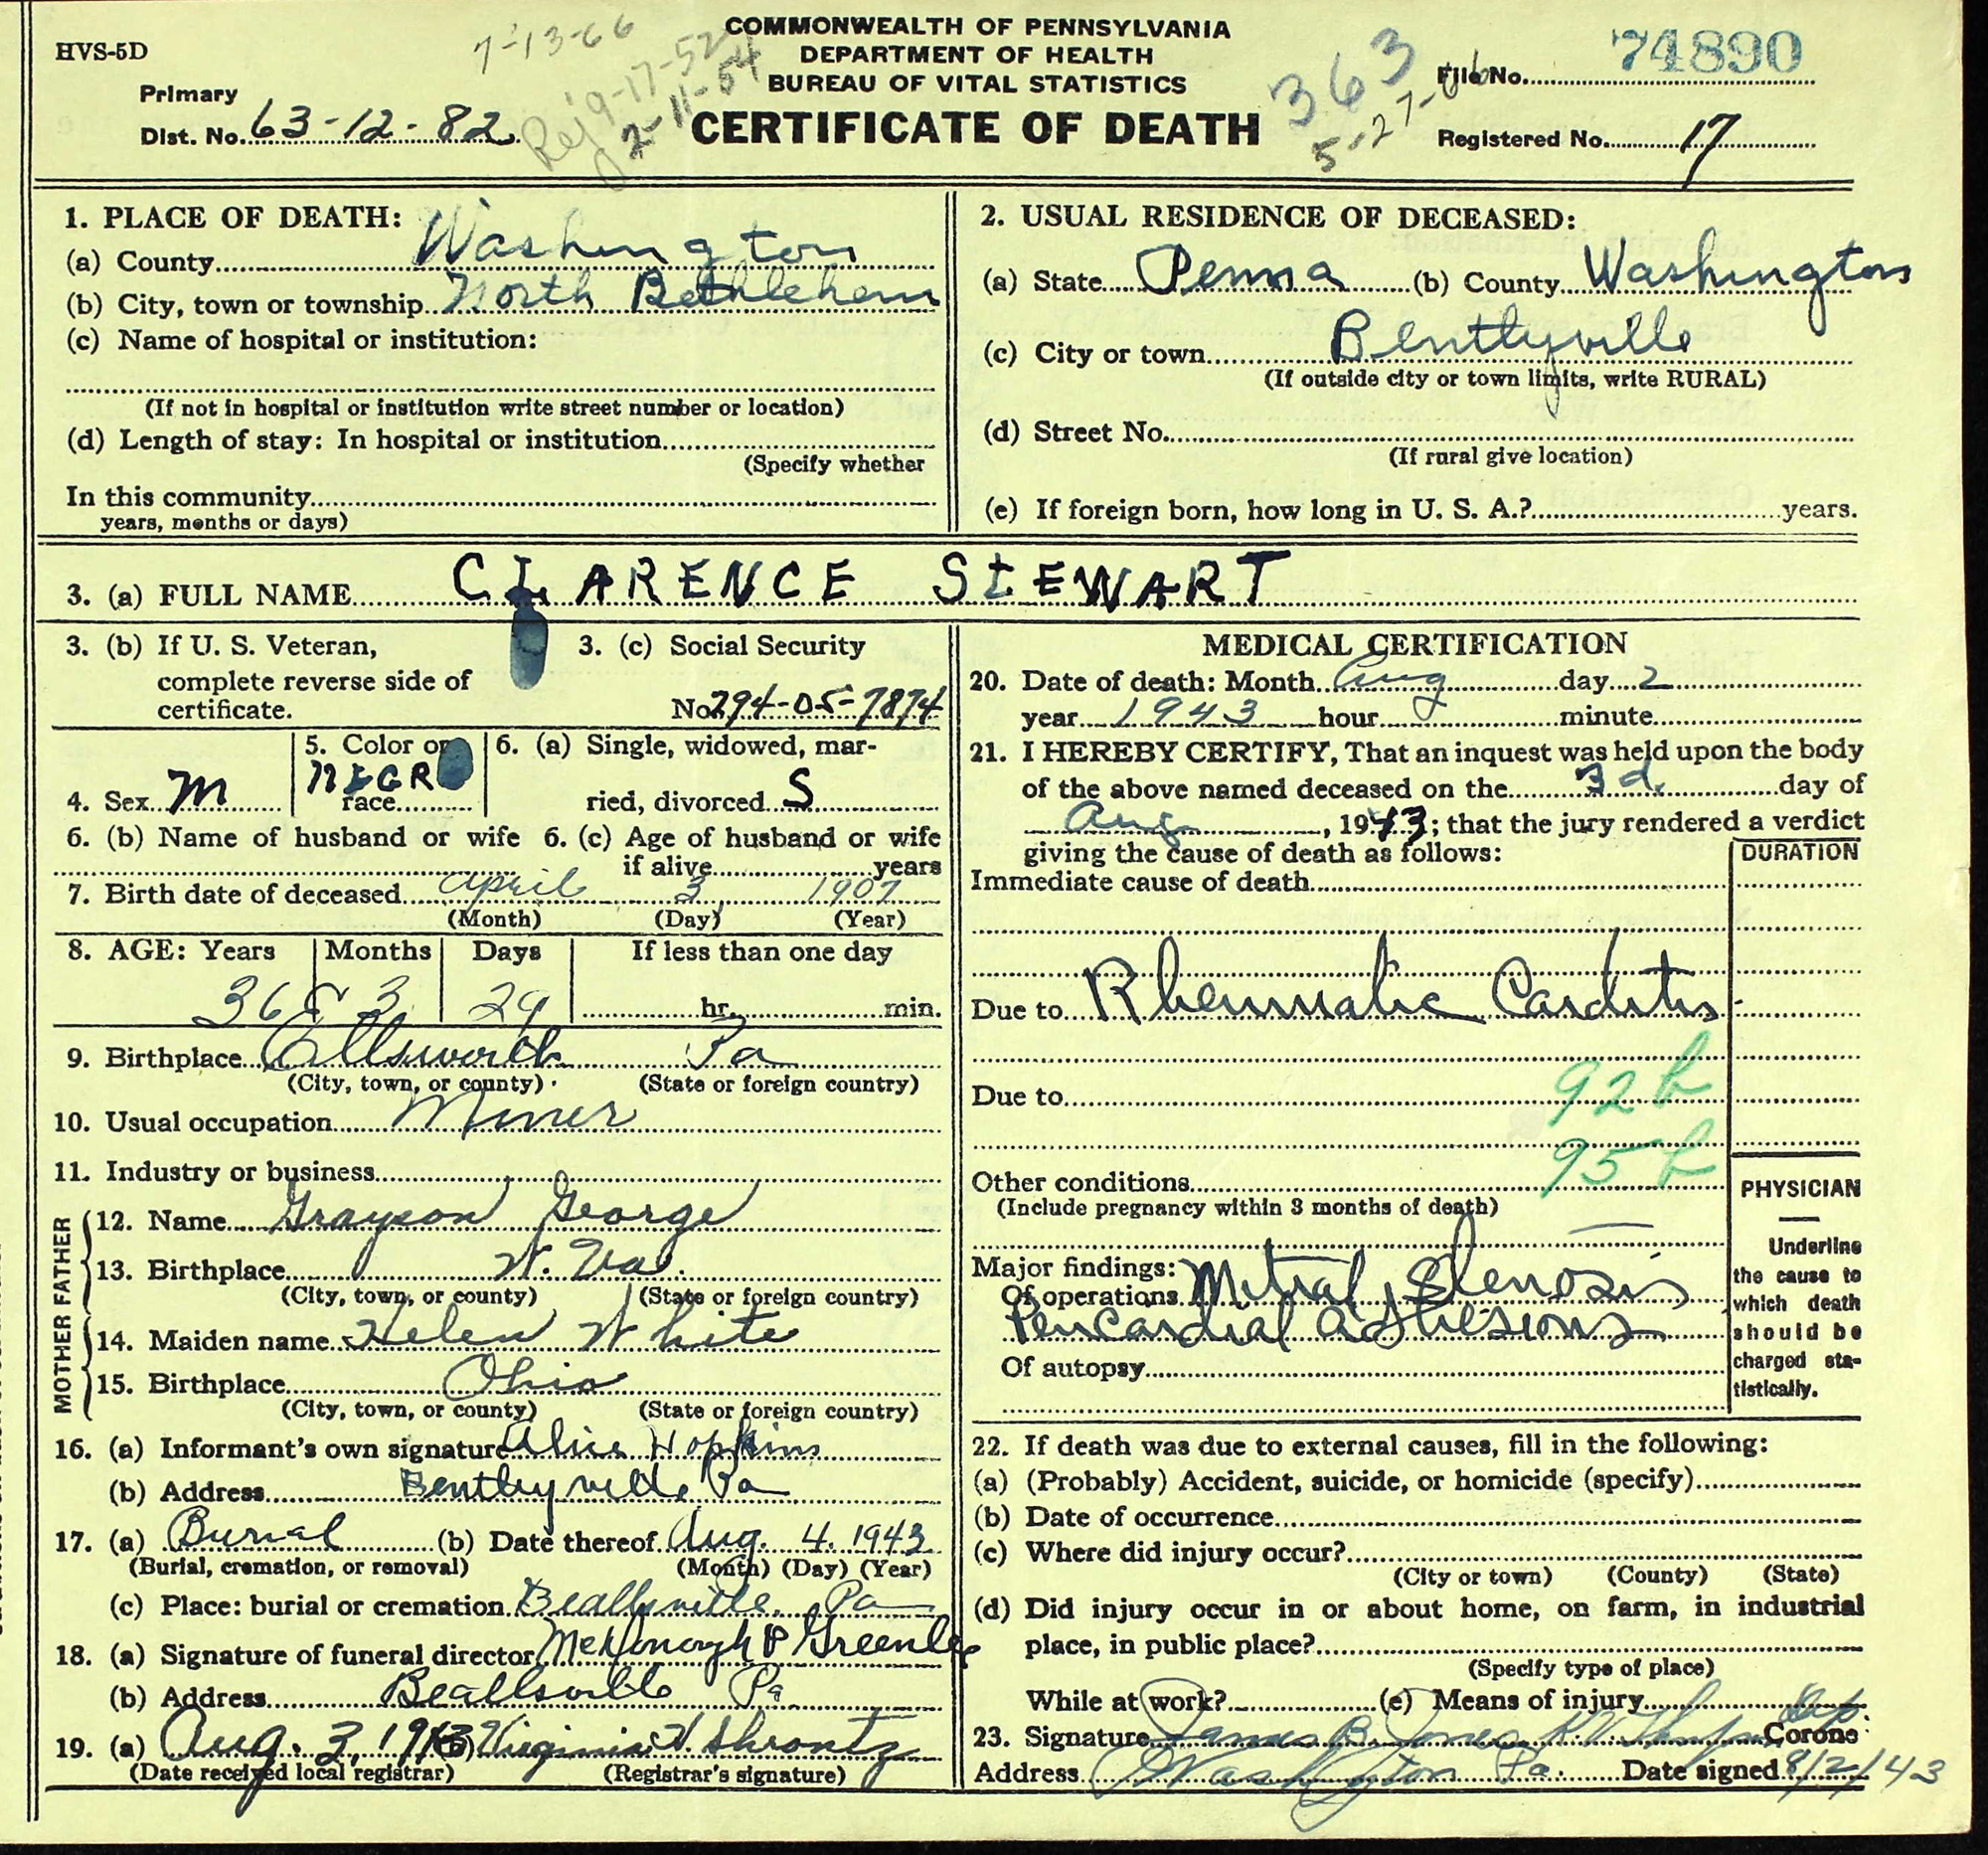 HVS-5D
7-13-66
COMMONWEALTH OF PENNSYLVANIA
DEPARTMENT OF HEALTH
BUREAU OF VITAL STATISTICS
CERTIFICATE OF DEATH
Primary
Dist. No. 63-12-82.
Rej 9-17-52
2-11-54
363
5-27-66
File No. 74890
Registered No. 17
1. PLACE OF DEATH:
(a) County Washington
(b) City, town or township North Bethlehem
(c) Name of hospital or institution:
(If not in hospital or institution write street number or location)
(d) Length of stay: In hospital or institution
(Specify whether
In this community
years, months or days)
2. USUAL RESIDENCE OF DECEASED:
(a) State Penna (b) County Washington
(c) City or town Bentlyville
(If outside city or town limits, write RURAL)
(d) Street No.
(If rural give location)
(e) If foreign born, how long in U. S. A.? years.
3. (a) FULL NAME CLARENCE STEWART
3. (b) If U. S. Veteran,
complete reverse side of
certificate.
3. (c) Social Security
No. 294-05-7874
4. Sex M
5. Color or
NEGRO
race
6. (a) Single, widowed, mar-
ried, divorced S
6. (b) Name of husband or wife 6. (c) Age of husband or wife
if alive years
7. Birth date of deceased April 3 1907
(Month) (Day) (Year)
8. AGE: Years Months Days If less than one day
36 3 29 hr. min.
9. Birthplace Ellsworth Pa
(City, town, or county) (State or foreign country)
10. Usual occupation Miner
11. Industry or business
FATHER
12. Name Grayson George
13. Birthplace W. Va.
(City, town, or county) (State or foreign country)
MOTHER
14. Maiden name Helen White
15. Birthplace Ohio
(City, town, or county) (State or foreign country)
16. (a) Informant's own signature Alice Hopkins
(b) Address Bentleyville Pa
17. (a) Burial (b) Date thereof Aug. 4. 1943
(Burial, cremation, or removal) (Month) (Day) (Year)
(c) Place: burial or cremation Beallsville, Pa
18. (a) Signature of funeral director McDonough & Greenlee
(b) Address Beallsville Pa
19. (a) Aug. 3, 1943 (b) Virginia H. Shrontz
(Date received local registrar) (Registrar's signature)
MEDICAL CERTIFICATION
20. Date of death: Month Aug day 2
year 1943 hour minute
21. I HEREBY CERTIFY, That an inquest was held upon the body
of the above named deceased on the 3d. day of
Aug, 1943; that the jury rendered a verdict
giving the cause of death as follows:
DURATION
Immediate cause of death
Due to Rheumatic Carditis
Due to 92b
95b
Other conditions
(Include pregnancy within 3 months of death)
Major findings:
Of operations Mitral Stenosis
Pericardial adhesions
Of autopsy
PHYSICIAN
Underline
the cause to
which death
should be
charged sta-
tistically.
22. If death was due to external causes, fill in the following:
(a) (Probably) Accident, suicide, or homicide (specify)
(b) Date of occurrence
(c) Where did injury occur?
(City or town) (County) (State)
(d) Did injury occur in or about home, on farm, in industrial
place, in public place?
(Specify type of place)
While at work? (e) Means of injury
Dep.
23. Signature James B. Jones Corone
Address Washington Pa. Date signed 8/2/43